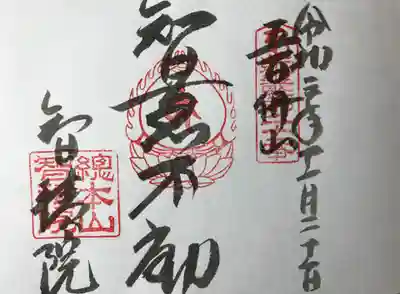 令和三年十一月二十日
五百佛山
智恵不動
智積院
總本山
智積院